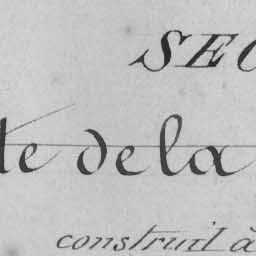 SEC
te de la
construit à